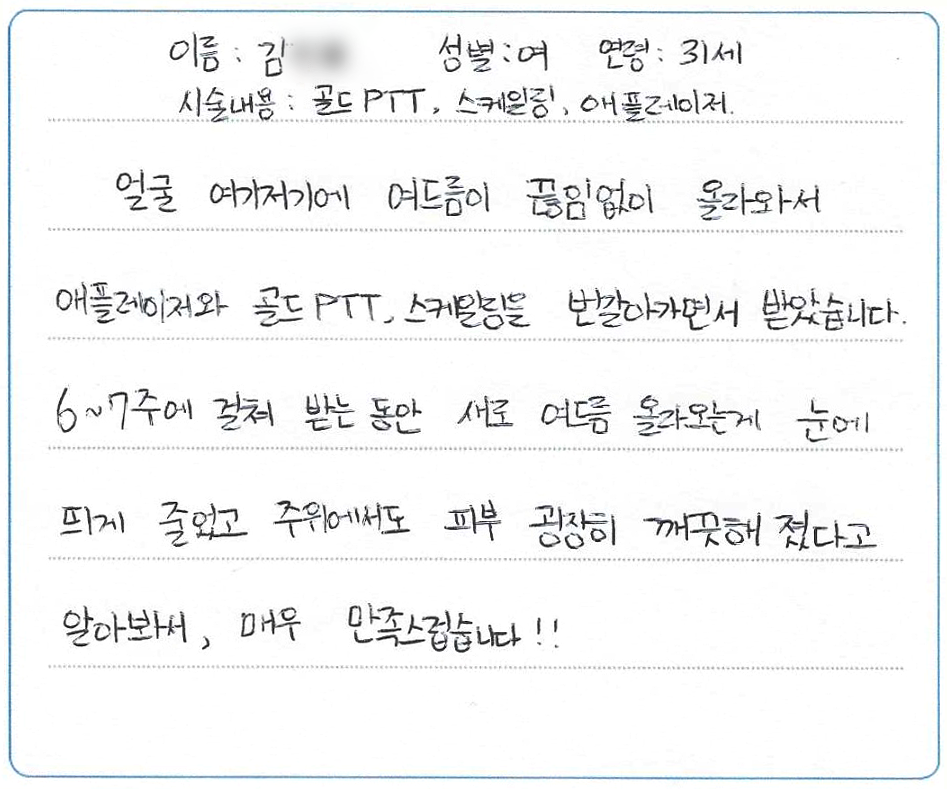 이름 : 김 성별 : 여 연령 : 31세
시술내용 : 골드 PTT, 스케일링, 애플레이저.
얼굴 여기저기에 여드름이 끊임없이 올라와서
애플레이저와 골드 PTT, 스케일링을 번갈아가면서 받았습니다.
6~7주에 걸쳐 받는 동안 새로 여드름 올라오는게 눈에
띄게 줄었고 주위에서도 피부 굉장히 깨끗해 졌다고
알아봐서, 매우 만족스럽습니다!!